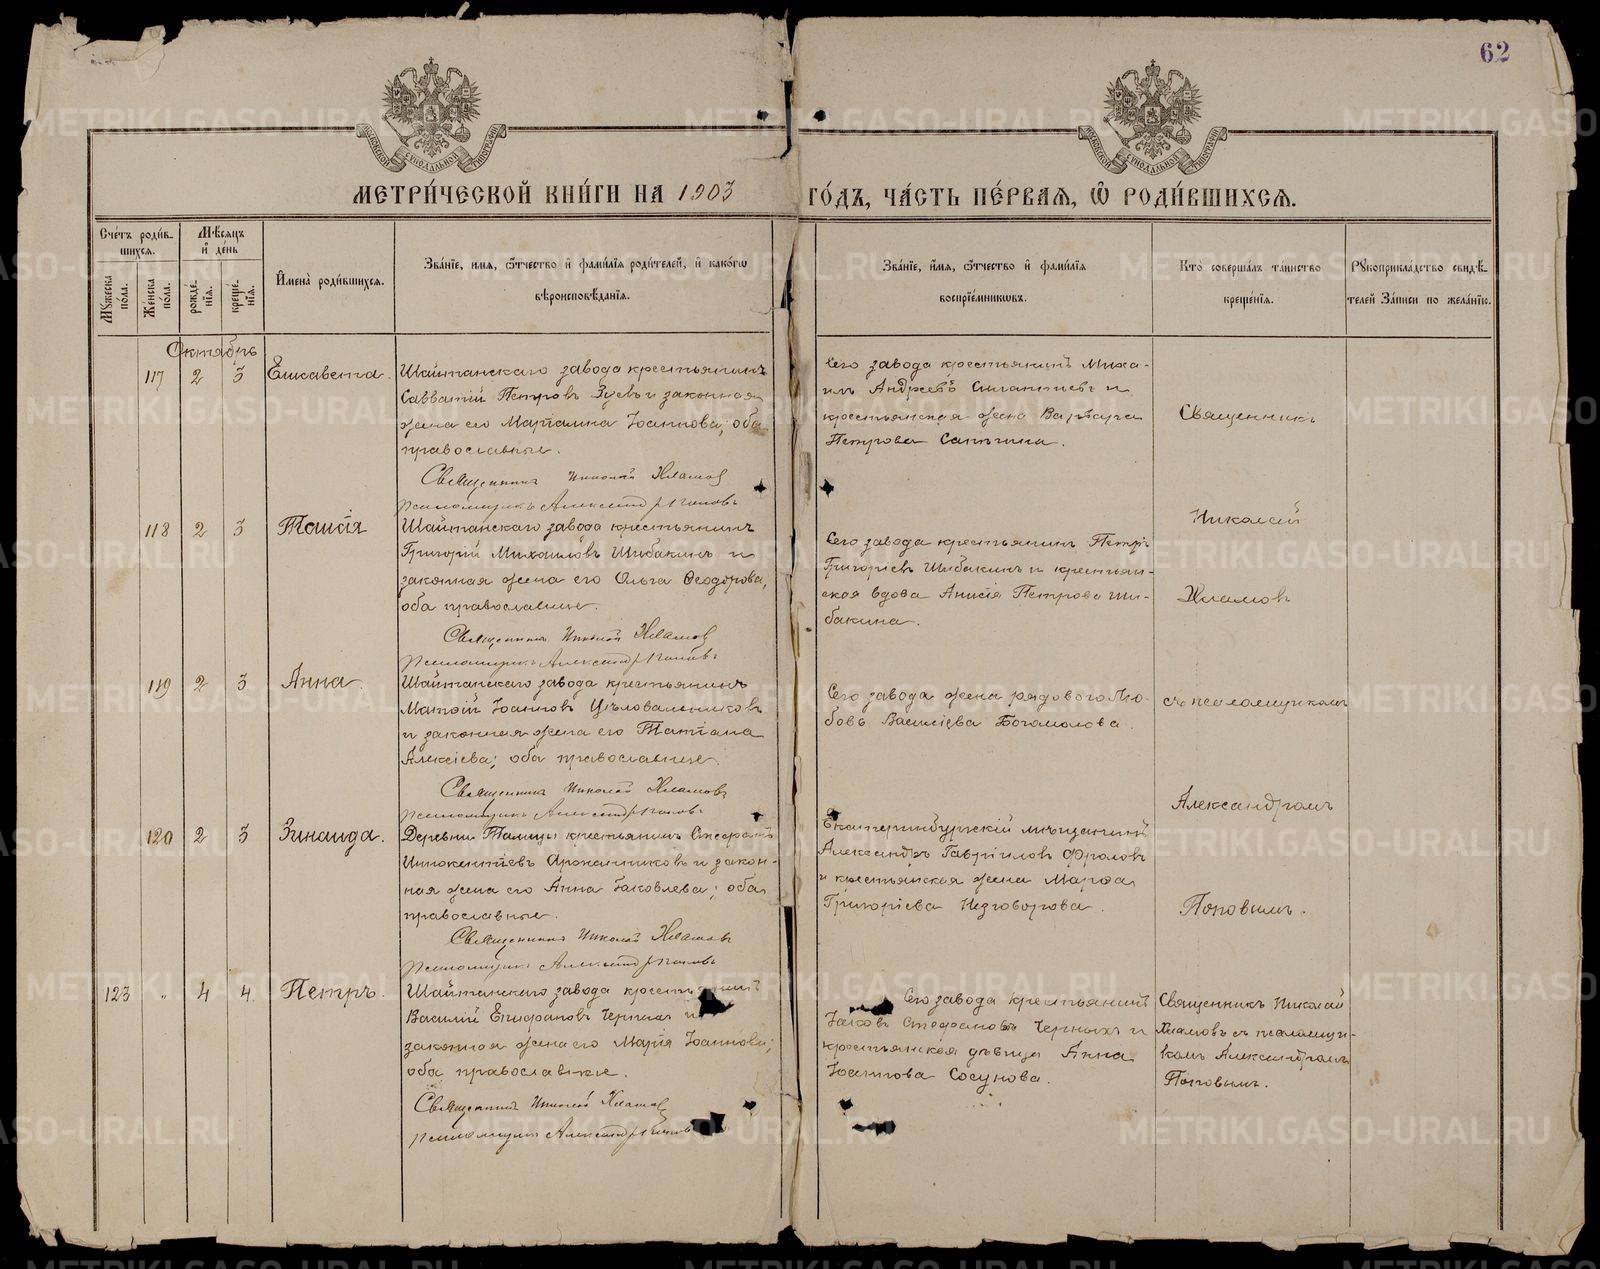 62
МОСКОВСКОЙ СѴНОДАЛЬНОЙ ТИПОГРАФІИ
МОСКОВСКОЙ СѴНОДАЛЬНОЙ ТИПОГРАФІИ
МЕТРИ́ЧЕСКОЙ КНИ́ГИ НА 1903 ГО́ДЪ, ЧА́СТЬ ПЕ́РВАѦ, Ѽ РОДИ́ВШИХСѦ.
Сче́тъ роди́в-
шихсѧ.
Мꙋ́жеска по́ла.
Же́нска по́ла.
Мѣ́сѧцъ
и҆ де́нь
рожде́-
нїѧ.
креще́-
нїѧ.
И҆мена̀ роди́вшихсѧ.
Зва́нїе, и҆́мѧ, ѻ҆́тчество и҆ фами́лїѧ роди́телей, и҆ како́гѡ
вѣроисповѣ́данїѧ.
Зва́нїе, и҆́мѧ, ѻ҆́тчество и҆ фами́лїѧ
воспрїе́мникѡвъ.
Кто̀ соверша́лъ та́инство
креще́нїѧ.
Рꙋкоприкла́дство свидѣ́-
телей за́писи по жела́нїю.
Октябрь
117 2 3 Елисавета.
Шайтанскаго завода крестьянинъ
Савватій Петровъ Зуевъ и законная
жена его Маріамна Іоаннова; оба
православные.
Священникъ Николай Хламов
Псаломщикъ Александръ Поповъ
Сего завода крестьянинъ Миха-
илъ Андреевъ и
крестьянская жена Варвара
Петрова
Священникъ
118 2 3 Таисія
Шайтанскаго завода крестьянинъ
Григорій Михаиловъ Шибакинъ и
законная жена его Ольга Ѳеодорова,
оба православные.
Священникъ Николай Хламов
Псаломщикъ Александръ Поповъ
Сего завода крестьянинъ Петръ
Григоріевъ Шибакинъ и крестьян-
ская вдова Анисія Петрова Ши-
бакина.
Николай
Хламовъ
119 2 3 Анна.
Шайтанскаго завода крестьянинъ
Матѳій Іоанновъ Цѣловальниковъ
и законная жена его Татіана
Алексіева; оба православные.
Священникъ Николай Хламовъ
Псаломщикъ Александръ Поповъ
Сего завода жена рядового Лю-
бовь Василіева Богомолова.
съ псаломщикомъ
Александромъ
120 2 3 Зинаида.
Деревни Талицы крестьянинъ Стефанъ
Иннокентіевъ и закон-
ная жена его Анна Іаковлева; оба
православные.
Священникъ Николай Хламовъ
Псаломщикъ Александръ Поповъ
Екатеринбургскій мѣщанинъ
Александръ Гавріиловъ Фроловъ
и крестьянская жена Марѳа
Григоріева Незговорова.
Поповымъ.
123 „ 4 4 Петръ.
Шайтанскаго завода крестьянинъ
Василій Епифановъ Черных и
законная жена его Марія Іоаннова;
оба православные.
Священникъ Николай Хламов
Псаломщикъ Александръ Поповъ
Сего завода крестьянинъ
Іаковъ Стефановъ Черныхъ и
крестьянская дѣвица Анна
Іоаннова Сосунова.
Священникъ Николай
Хламовъ съ псаломщи-
комъ Александромъ
Поповымъ.
METRIKI.GASO-URAL.RU